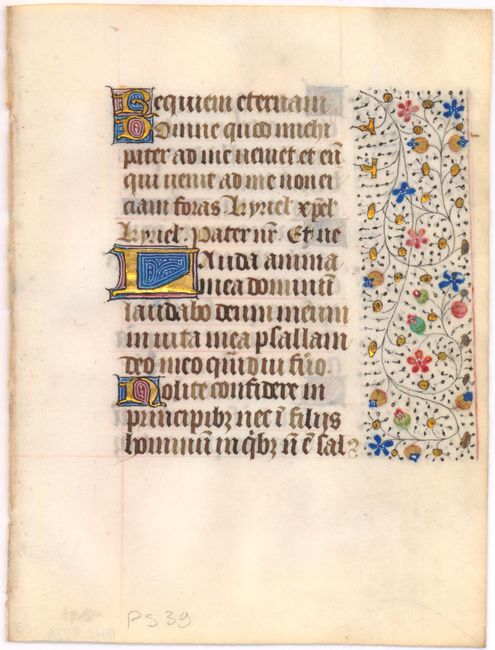 Requiem eternam
Omne quod michi
pater ad me veniet et eū
qui venit ad me non ei
ciam foras Kyriel. xp̄el.
kyriel. Pater nr̄. Et ne
Lauda anima
mea dominū
laudabo deum meum
in vita mea psallam
deo meo quādiu fūo.
Nolite confidere in
principibꝫ nec ī filijs
hominū in qͥbꝫ nͦ ē salꝰ
PS 39